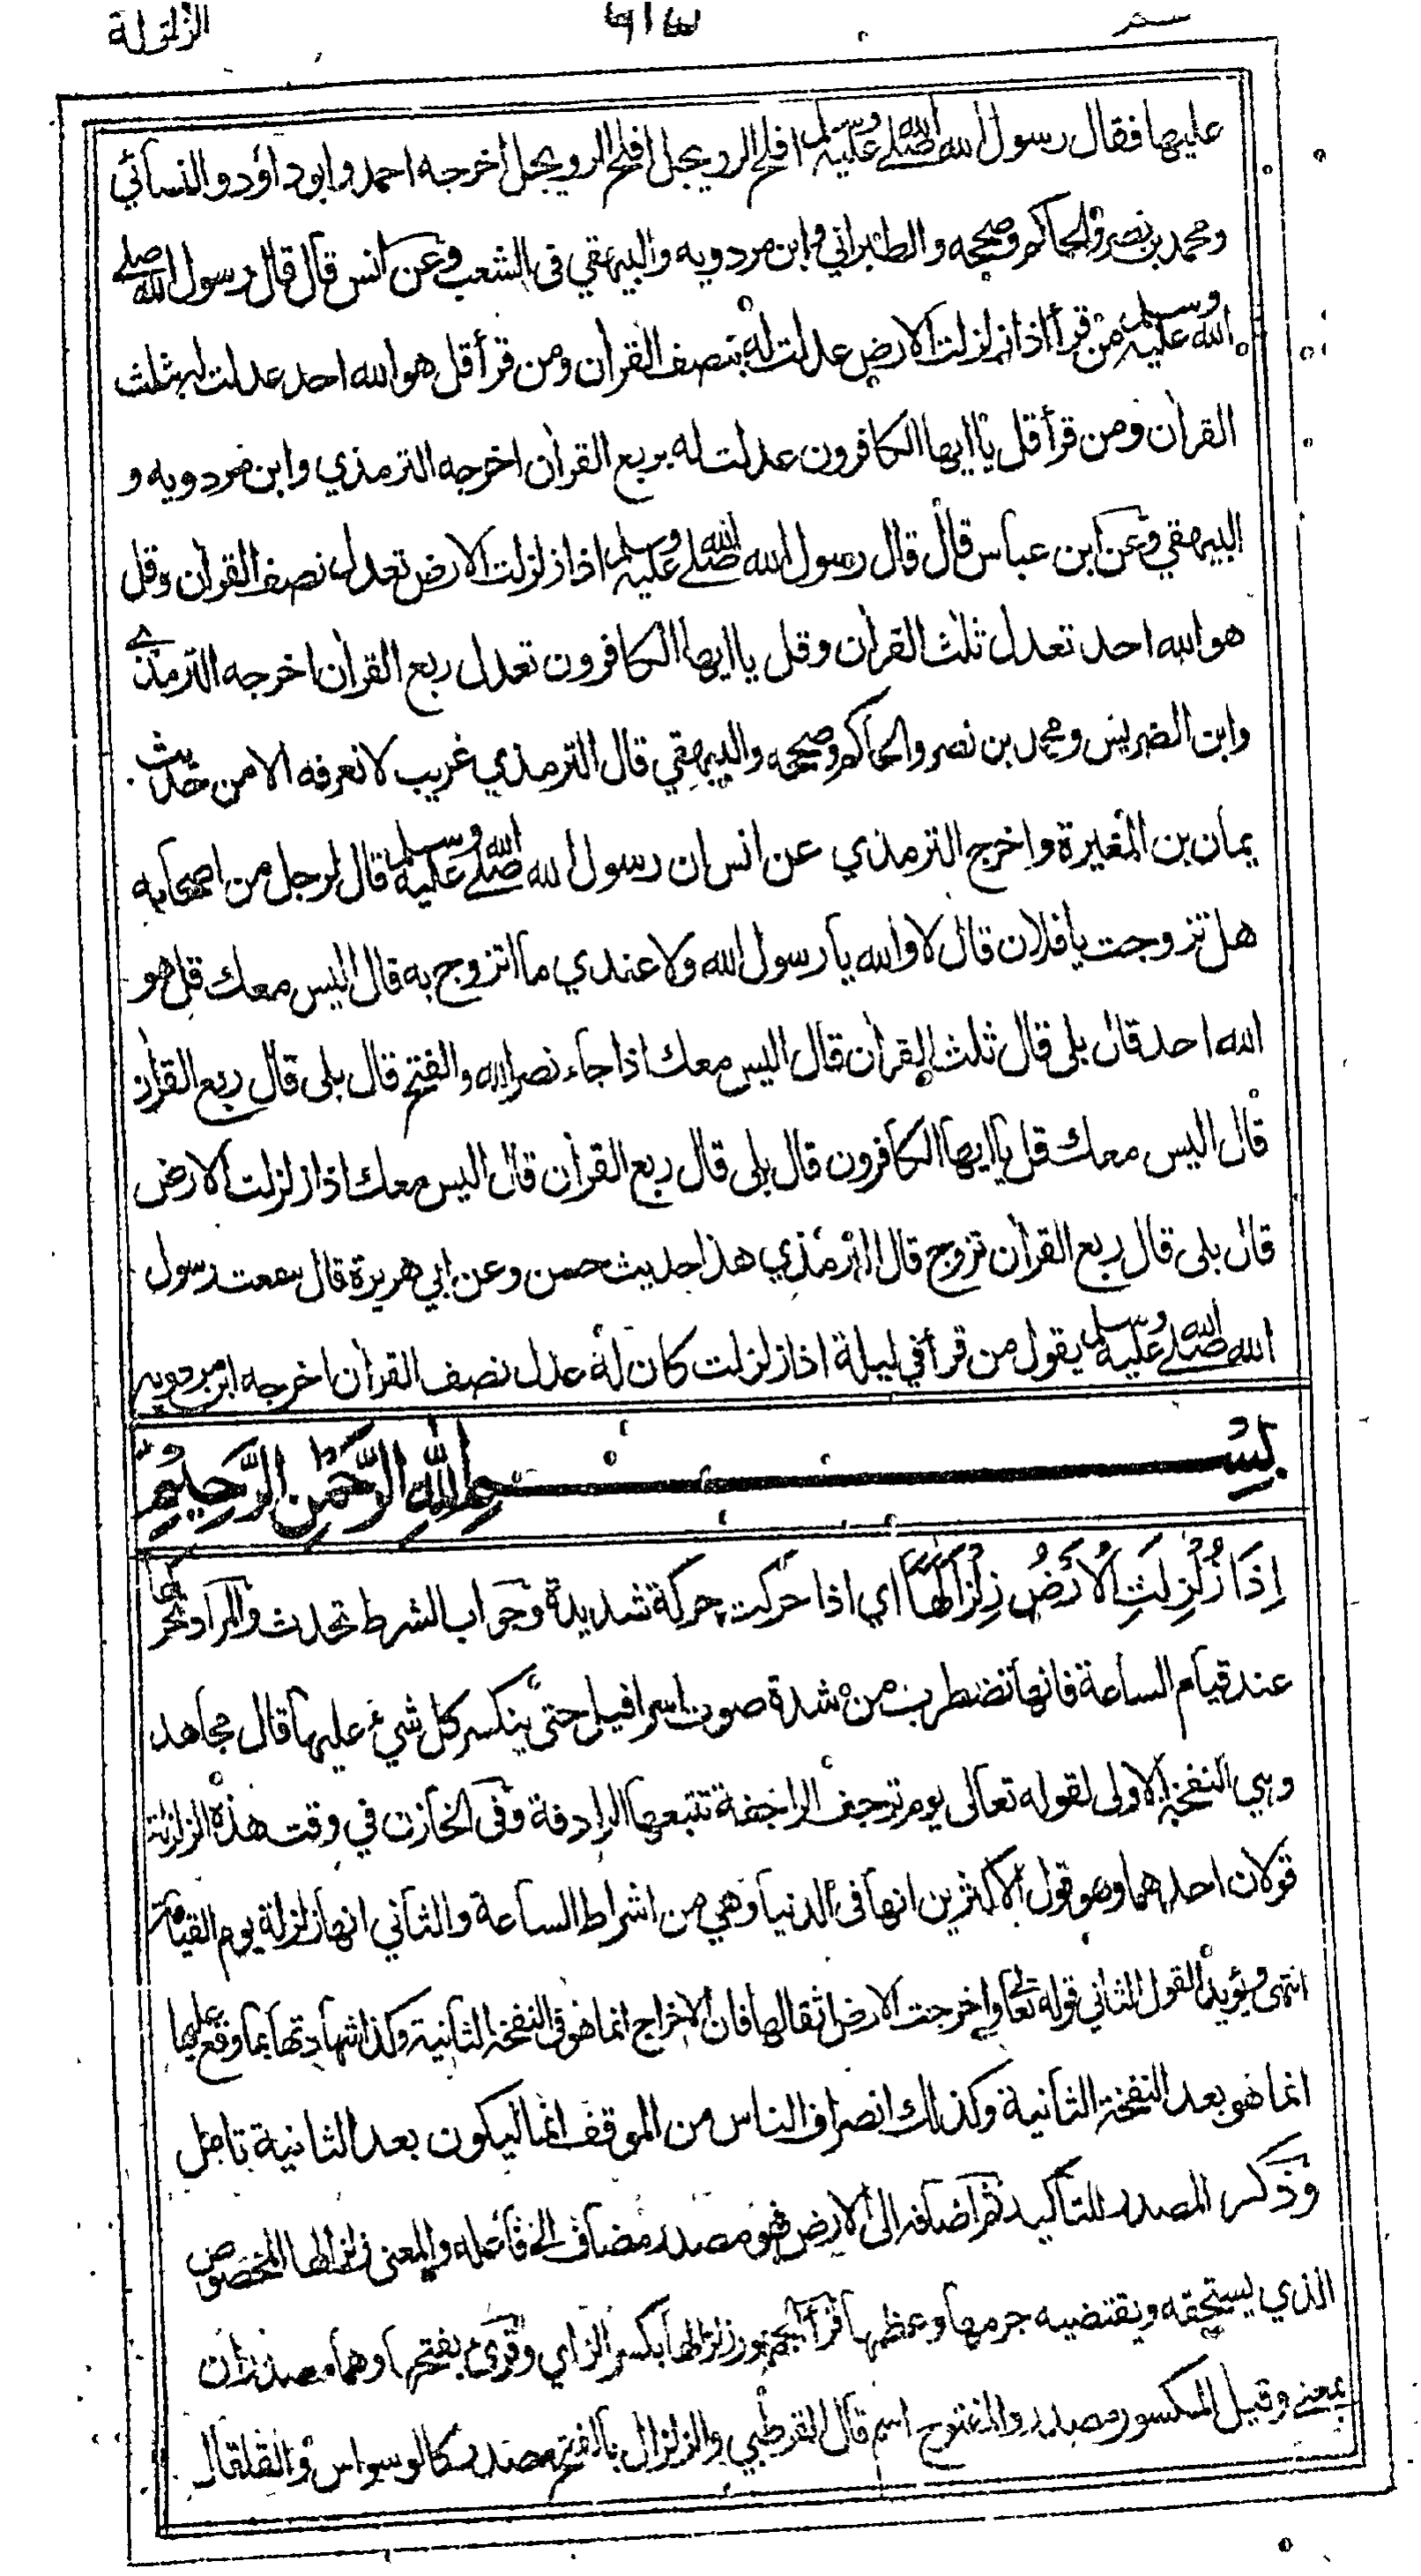 عم ٤١٣ الزلزلة
عليها فقال رسول الله صلى الله عليه وسلم افلح الرويجل افلح الرويجل أخرجه احمد وابو داؤد والنسائي
ومحمد بن نصر والحاكم وصححه والطبراني وابن مردويه والبيهقي في الشعب وعن انس قال قال رسول الله صلى
الله عليه وسلم من قرأ اذا زلزلت الارض عدلت له بنصف القرآن ومن قرأ قل هو الله احد عدلت له بثلث
القرآن ومن قرأ قل يا ايها الكافرون عدلت له بربع القرآن اخرجه الترمذي وابن مردويه و
البيهقي وعن ابن عباس قال قال رسول الله صلى الله عليه وسلم اذا زلزلت الارض تعدل نصف القرآن وقل
هو الله احد تعدل ثلث القرآن وقل يا ايها الكافرون تعدل ربع القرآن اخرجه الترمذي
وابن الضريس ومحمد بن نصر والحاكم وصححه والبيهقي قال الترمذي غريب لا نعرفه الا من حديث
يمان بن المغيرة واخرج الترمذي عن انس ان رسول الله صلى الله عليه وسلم قال لرجل من اصحابه
هل تزوجت يا فلان قال لا والله يا رسول الله ولا عندي ما اتزوج به قال اليس معك قل هو
الله احد قال بلى قال ثلث القرآن قال اليس معك اذا جاء نصر الله والفتح قال بلى قال ربع القرآن
قال اليس معك قل يا ايها الكافرون قال بلى قال ربع القرآن قال اليس معك اذا زلزلت الارض
قال بلى قال ربع القرآن تزوج قال الترمذي هذا حديث حسن وعن ابي هريرة قال سمعت رسول
الله صلى الله عليه وسلم يقول من قرأ في ليلة اذا زلزلت كان له عدل نصف القرآن اخرجه ابن مردويه
بِسْمِ اللهِ الرَّحْمٰنِ الرَّحِيْمِ
إِذَا زُلْزِلَتِ الْاَرْضُ زِلْزَالَهَا اي اذا حركت حركة شديدة وجواب الشرط تحدث والمراد تحركها
عند قيام الساعة فانها تضطرب من شدة صوت اسرافيل حتى ينكسر كل شيء عليها قال مجاهد
وهي النفخة الاولى لقوله تعالى يوم ترجف الراجفة تتبعها الرادفة وفي الخازن في وقت هذه الزلزلة
قولان احدهما وهو قول الاكثرين انها في الدنيا وهي من اشراط الساعة والثاني انها زلزلة يوم القيامة
انتهى ويؤيد القول الثاني قوله تعالى واخرجت الارض اثقالها فان الاخراج انما هو في النفخة الثانية وكذا شهادتها بما وقع عليها
انما هو بعد النفخة الثانية وكذلك انصراف الناس من الموقف انما يكون بعد الثانية تامل
وذكر المصدر للتأكيد ثم اضافه الى الارض فهو مصدر مضاف الى فاعله والمعنى زلزالها المخصوص
الذي يستحقه ويقتضيه جرمها وعظمها قرأ الجمهور زلزالها بكسر الزاي وقرئ بفتحها وهما مصدران
بمعنى وقيل المكسور مصدر والمفتوح اسم قال القرطبي والزلزال بالفتح مصدر كالوسواس والقلقال